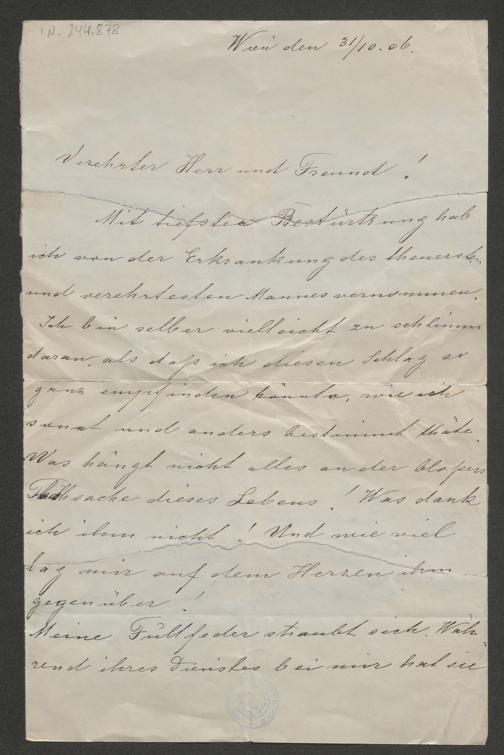 IN. 244.878
Wien den 31/10. 06.
Verehrter Herr und Freund!
Mit tiefster Bestürtzung hab
ich von der Erkrankung des theuersten
und verehrtesten Mannes vernommen.
Ich bin selber vielleicht zu schlimm
daran, als daß ich diesen Schlag so
ganz empfinden könnte, wie ich
sonst und anders bestimmt thäte.
Was hängt nicht alles an der bloßen
Thatsache dieses Lebens! Was dank
ich ihm nicht! Und wie viel
lag mir auf dem Herzen ihm
gegenüber!
Meine Füllfeder straubt sich. Wäh-
rend ihres Dienstes bei mir hat sie